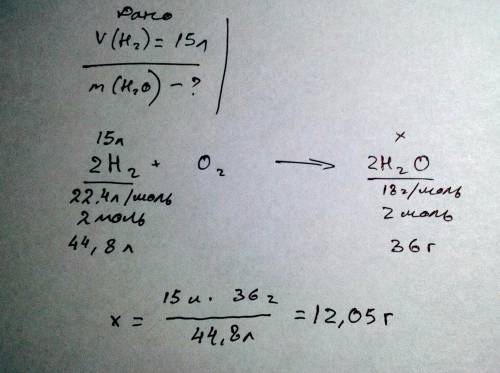 Дано
V(H₂) = 15л
m(H₂O) – ?
15л x
2H₂ + O₂ → 2H₂O
22,4л/моль 18г/моль
2 моль 2 моль
44,8л 36г
x = 15л · 36г / 44,8л = 12,05г